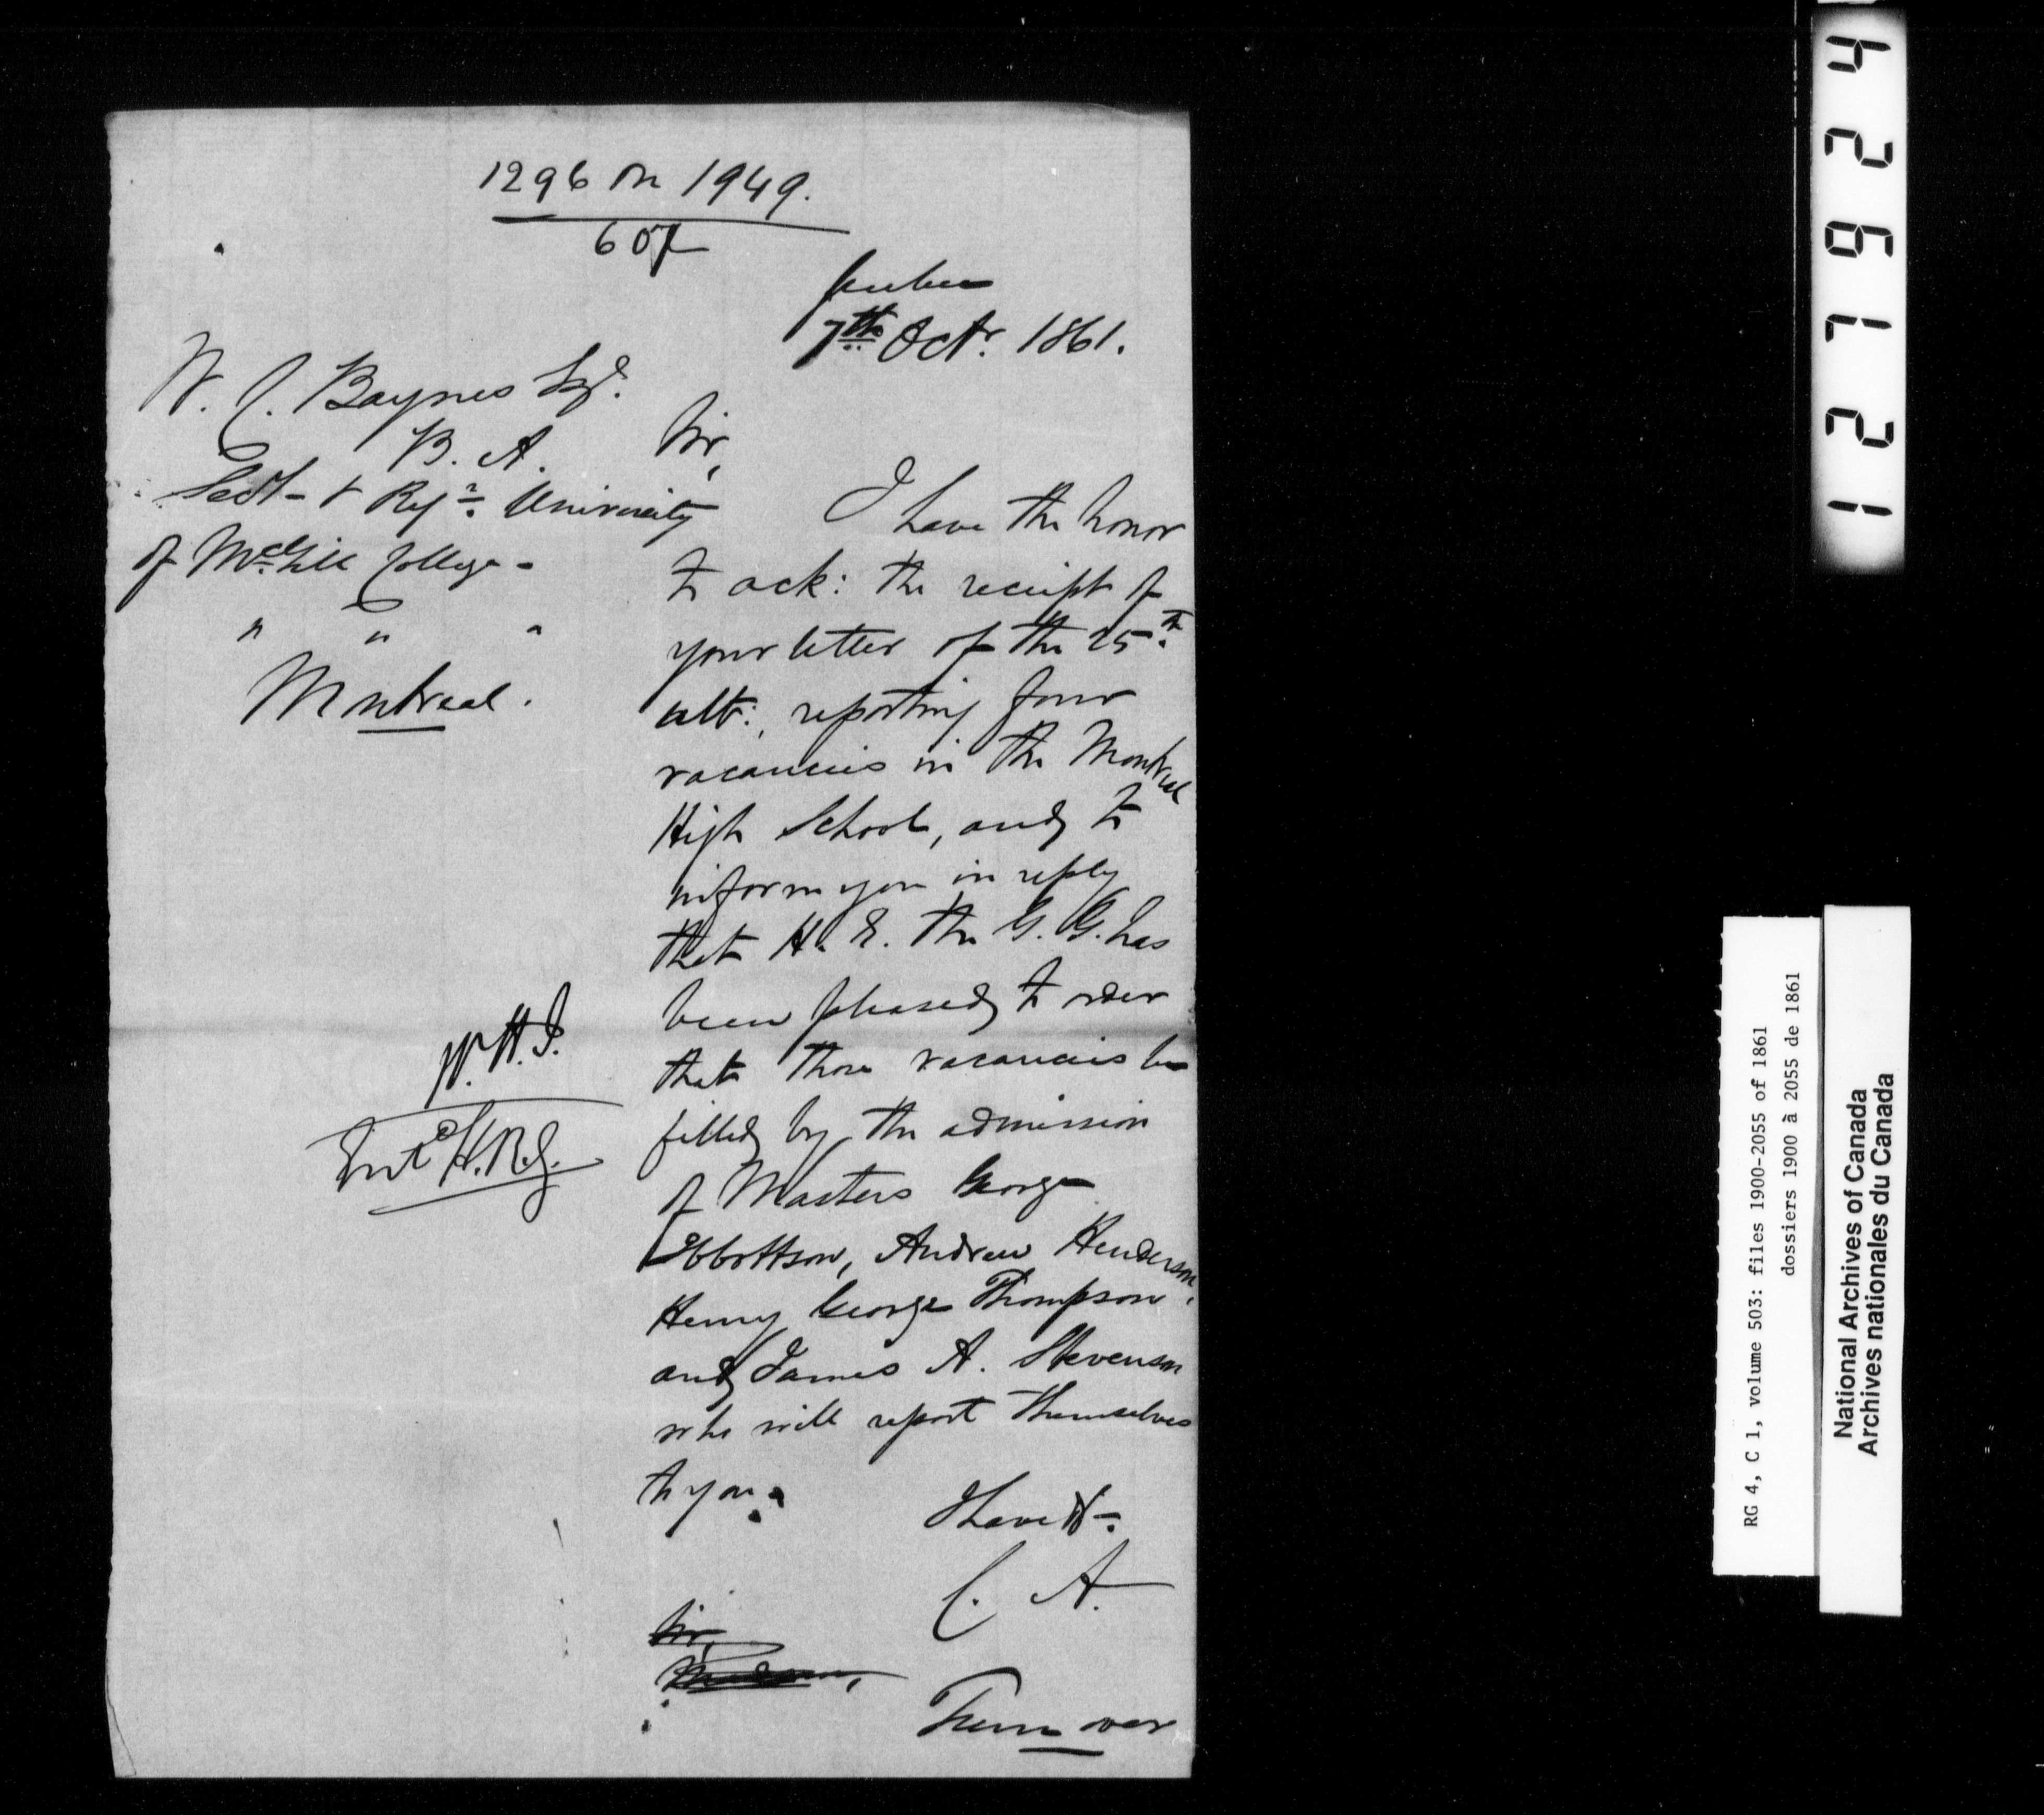 1296 on 1949.
607
Quebec
7th Octr. 1861.
W. C. Baynes Esqr.
B. A.
Secy & Regr. University
of McGill College -
" " "
Montreal.
Sir,
I have the honor
to ack: the receipt of
your letter of the 25th
ult:, reporting four
vacancies in the Montreal
High School, and to
inform you in reply
that H. E. the G. G. has
been pleased to order
that those vacancies be
filled by the admission
of Masters George
Ebbottson, Andrew Henderson,
Henry George Thompson,
and James A. Stevenson
who will report themselves
to you.
I have &c.
C. A.
W. H. J.
Entd H. R. J.
Sir,
Madam,
Turn over
127924
RG 4, C 1, volume 503: files 1900-2055 of 1861
dossiers 1900 à 2055 de 1861
National Archives of Canada
Archives nationales du Canada